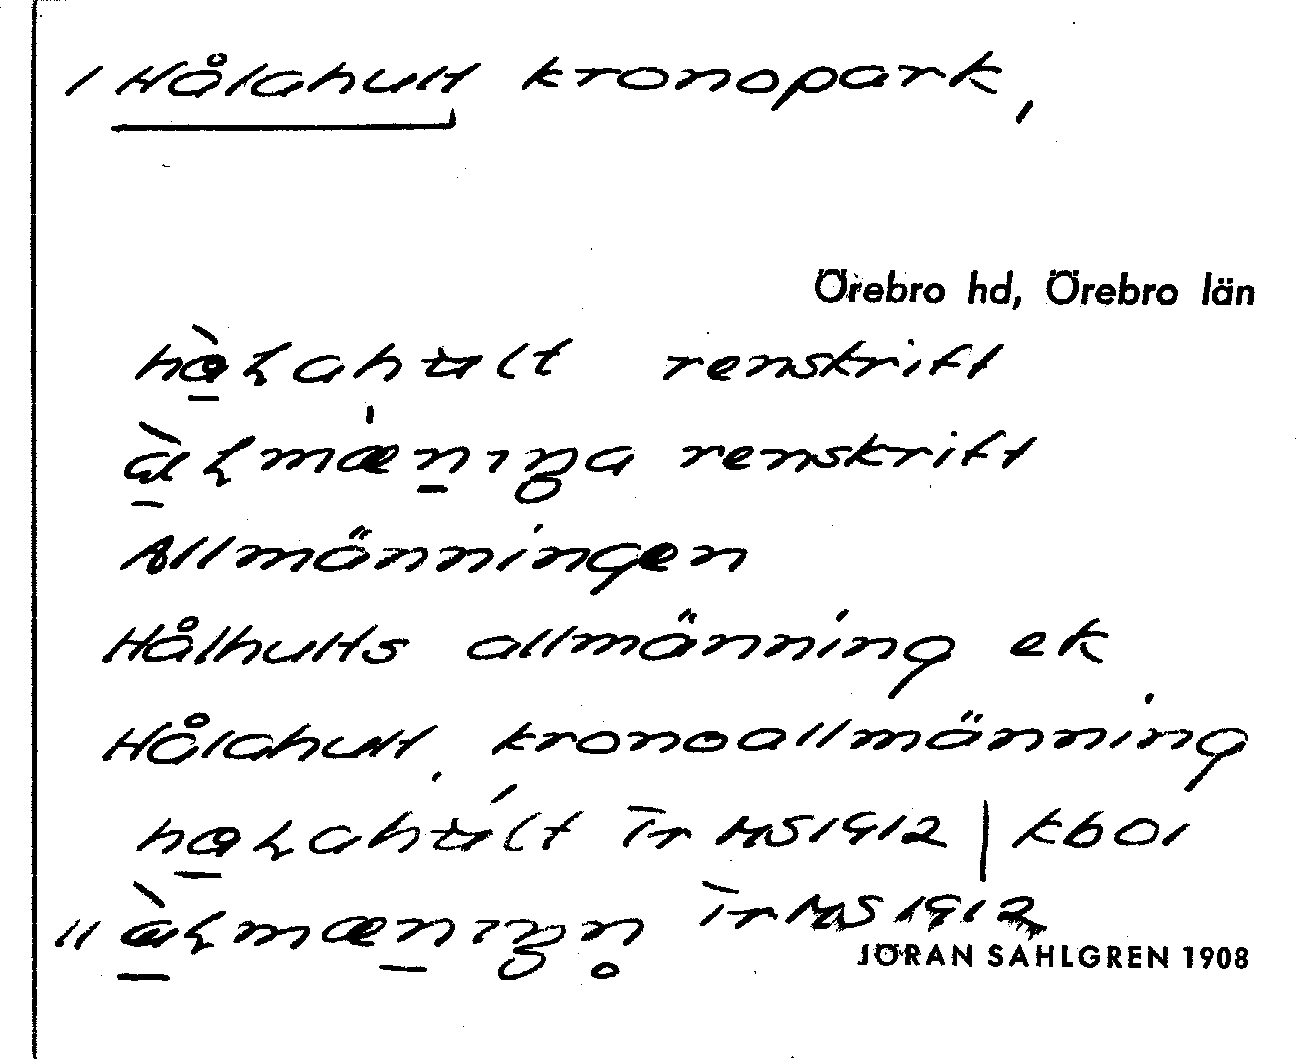 / Hålahult kronopark,
Örebro hd, Örebro län
hàɭahʉlt renskrift
àɭmæ̀nɪŋa renskrift
Allmänningen
Hålhults allmänning ek
Hålahult, kronoallmänning
haɭahʉ́lt Tr MS 1912 | kboi
// àɭmænɪŋn̥ Tr MS 1912
JÖRAN SAHLGREN 1908